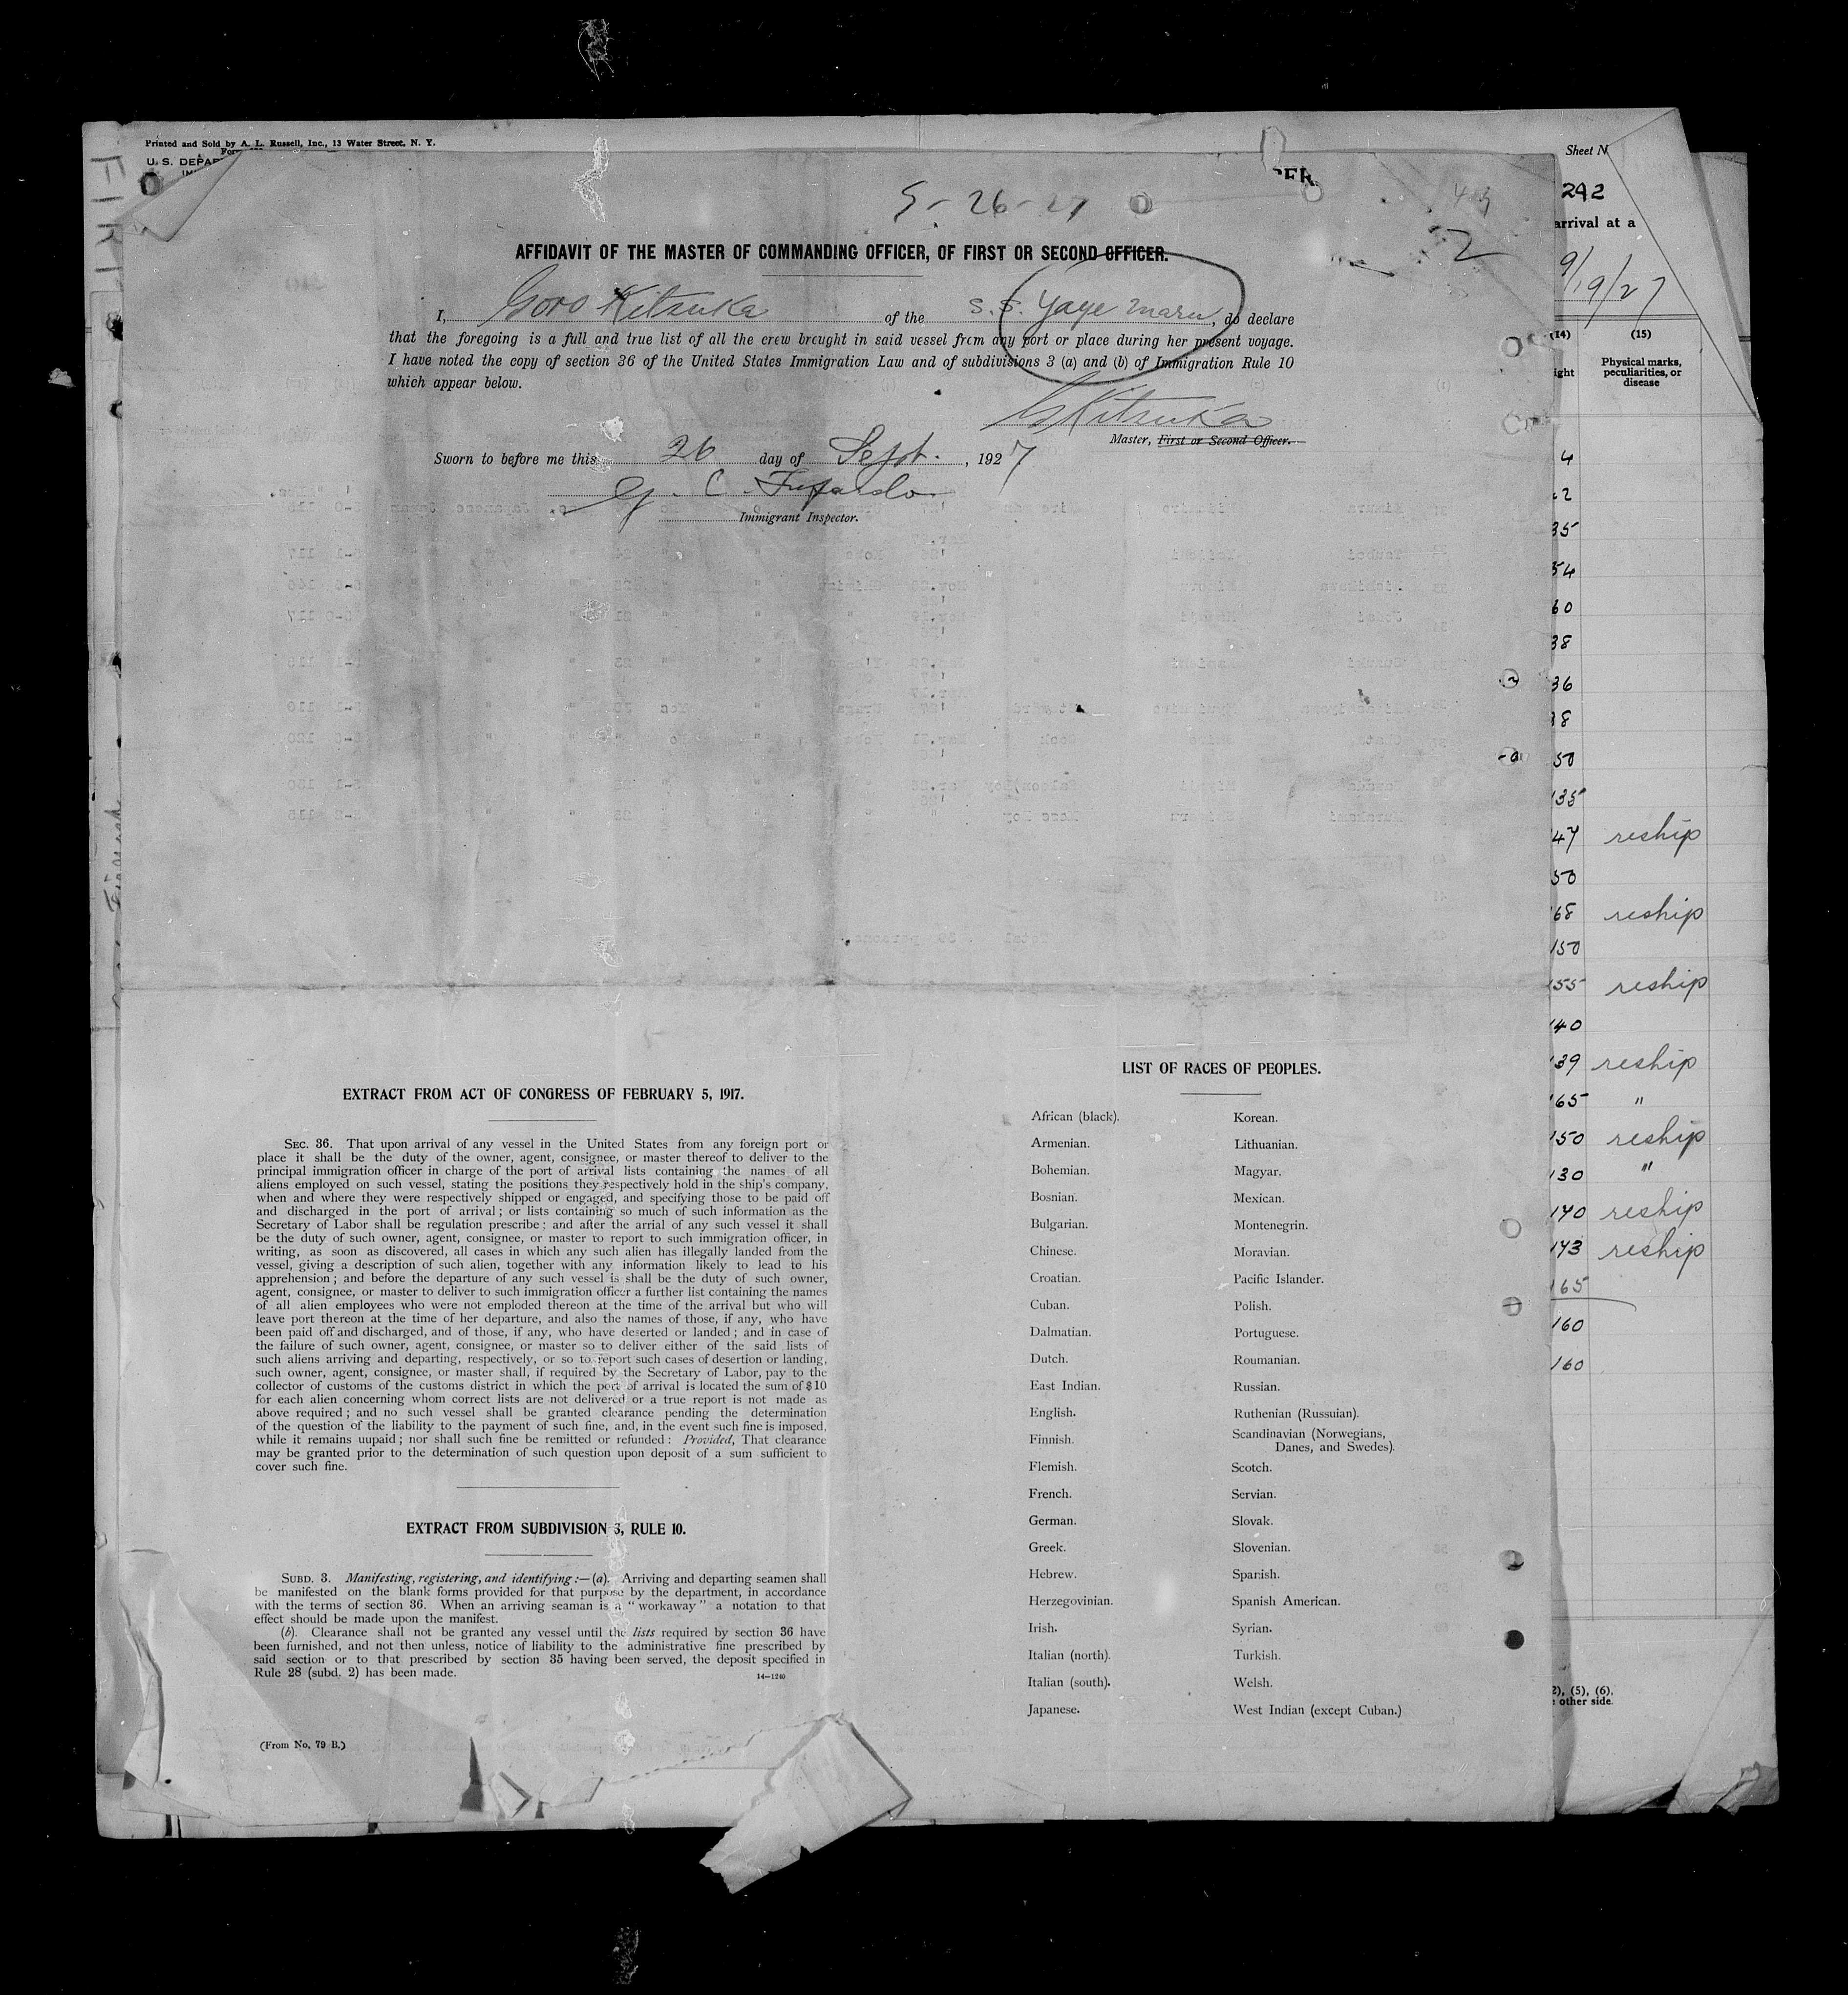 Printed and Sold by A. L. Russell, Inc., 13 Water Street, N. Y.
U. S. DEPAR
Sheet N
292
arrival at a
9/19/27
(14) (15)
ight Physical marks, peculiarities, or disease
9-26-27
2
AFFIDAVIT OF THE MASTER OF COMMANDING OFFICER, OF FIRST OR SECOND OFFICER.
I, Goro Kitsuka of the S. S. Yaye Maru, do declare
that the foregoing is a full and true list of all the crew brought in said vessel from any port or place during her present voyage.
I have noted the copy of section 36 of the United States Immigration Law and of subdivisions 3 (a) and (b) of Immigration Rule 10
which appear below.
G Kitsuka
Master, First or Second Officer.
Sworn to before me this 26 day of Sept., 1927
Immigrant Inspector.
EXTRACT FROM ACT OF CONGRESS OF FEBRUARY 5, 1917.
SEC. 36. That upon arrival of any vessel in the United States from any foreign port or
place it shall be the duty of the owner, agent, consignee, or master thereof to deliver to the
principal immigration officer in charge of the port of arrival lists containing the names of all
aliens employed on such vessel, stating the positions they respectively hold in the ship's company,
when and where they were respectively shipped or engaged, and specifying those to be paid off
and discharged in the port of arrival; or lists containing so much of such information as the
Secretary of Labor shall be regulation prescribe; and after the arrial of any such vessel it shall
be the duty of such owner, agent, consignee, or master to report to such immigration officer, in
writing, as soon as discovered, all cases in which any such alien has illegally landed from the
vessel, giving a description of such alien, together with any information likely to lead to his
apprehension; and before the departure of any such vessel is shall be the duty of such owner,
agent, consignee, or master to deliver to such immigration officer a further list containing the names
of all alien employees who were not emploded thereon at the time of the arrival but who will
leave port thereon at the time of her departure, and also the names of those, if any, who have
been paid off and discharged, and of those, if any, who have deserted or landed; and in case of
the failure of such owner, agent, consignee, or master so to deliver either of the said lists of
such aliens arriving and departing, respectively, or so to report such cases of desertion or landing,
such owner, agent, consignee, or master shall, if required by the Secretary of Labor, pay to the
collector of customs of the customs district in which the port of arrival is located the sum of $10
for each alien concerning whom correct lists are not delivered or a true report is not made as
above required; and no such vessel shall be granted clearance pending the determination
of the question of the liability to the payment of such fine, and, in the event such fine is imposed,
while it remains uupaid; nor shall such fine be remitted or refunded: Provided, That clearance
may be granted prior to the determination of such question upon deposit of a sum sufficient to
cover such fine.
EXTRACT FROM SUBDIVISION 3, RULE 10.
SUBD. 3. Manifesting, registering, and identifying:—(a). Arriving and departing seamen shall
be manifested on the blank forms provided for that purpose by the department, in accordance
with the terms of section 36. When an arriving seaman is a "workaway" a notation to that
effect should be made upon the manifest.
(b). Clearance shall not be granted any vessel until the lists required by section 36 have
been furnished, and not then unless, notice of liability to the administrative fine prescribed by
said section or to that prescribed by section 35 having been served, the deposit specified in
Rule 28 (subd. 2) has been made.
14—1240
(From No. 79 B.)
LIST OF RACES OF PEOPLES.
African (black). Korean.
Armenian. Lithuanian.
Bohemian. Magyar.
Bosnian. Mexican.
Bulgarian. Montenegrin.
Chinese. Moravian.
Croatian. Pacific Islander.
Cuban. Polish.
Dalmatian. Portuguese.
Dutch. Roumanian.
East Indian. Russian.
English. Ruthenian (Russuian).
Finnish. Scandinavian (Norwegians,
Danes, and Swedes).
Flemish. Scotch.
French. Servian.
German. Slovak.
Greek. Slovenian.
Hebrew. Spanish.
Herzegovinian. Spanish American.
Irish. Syrian.
Italian (north). Turkish.
Italian (south). Welsh.
Japanese. West Indian (except Cuban.)
4
2
35
54
60
38
36
38
50
135
47 reship
50
168 reship
150
155 reship
140
139 reship
165 "
150 reship
130 "
170 reship
173 reship
165
160
160
2), (5), (6),
other side.